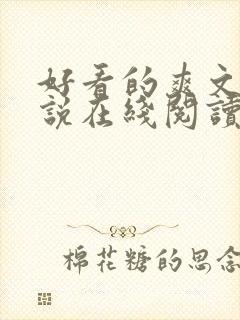 好看的爽文
説在綫閲讀
棉花糖的思念